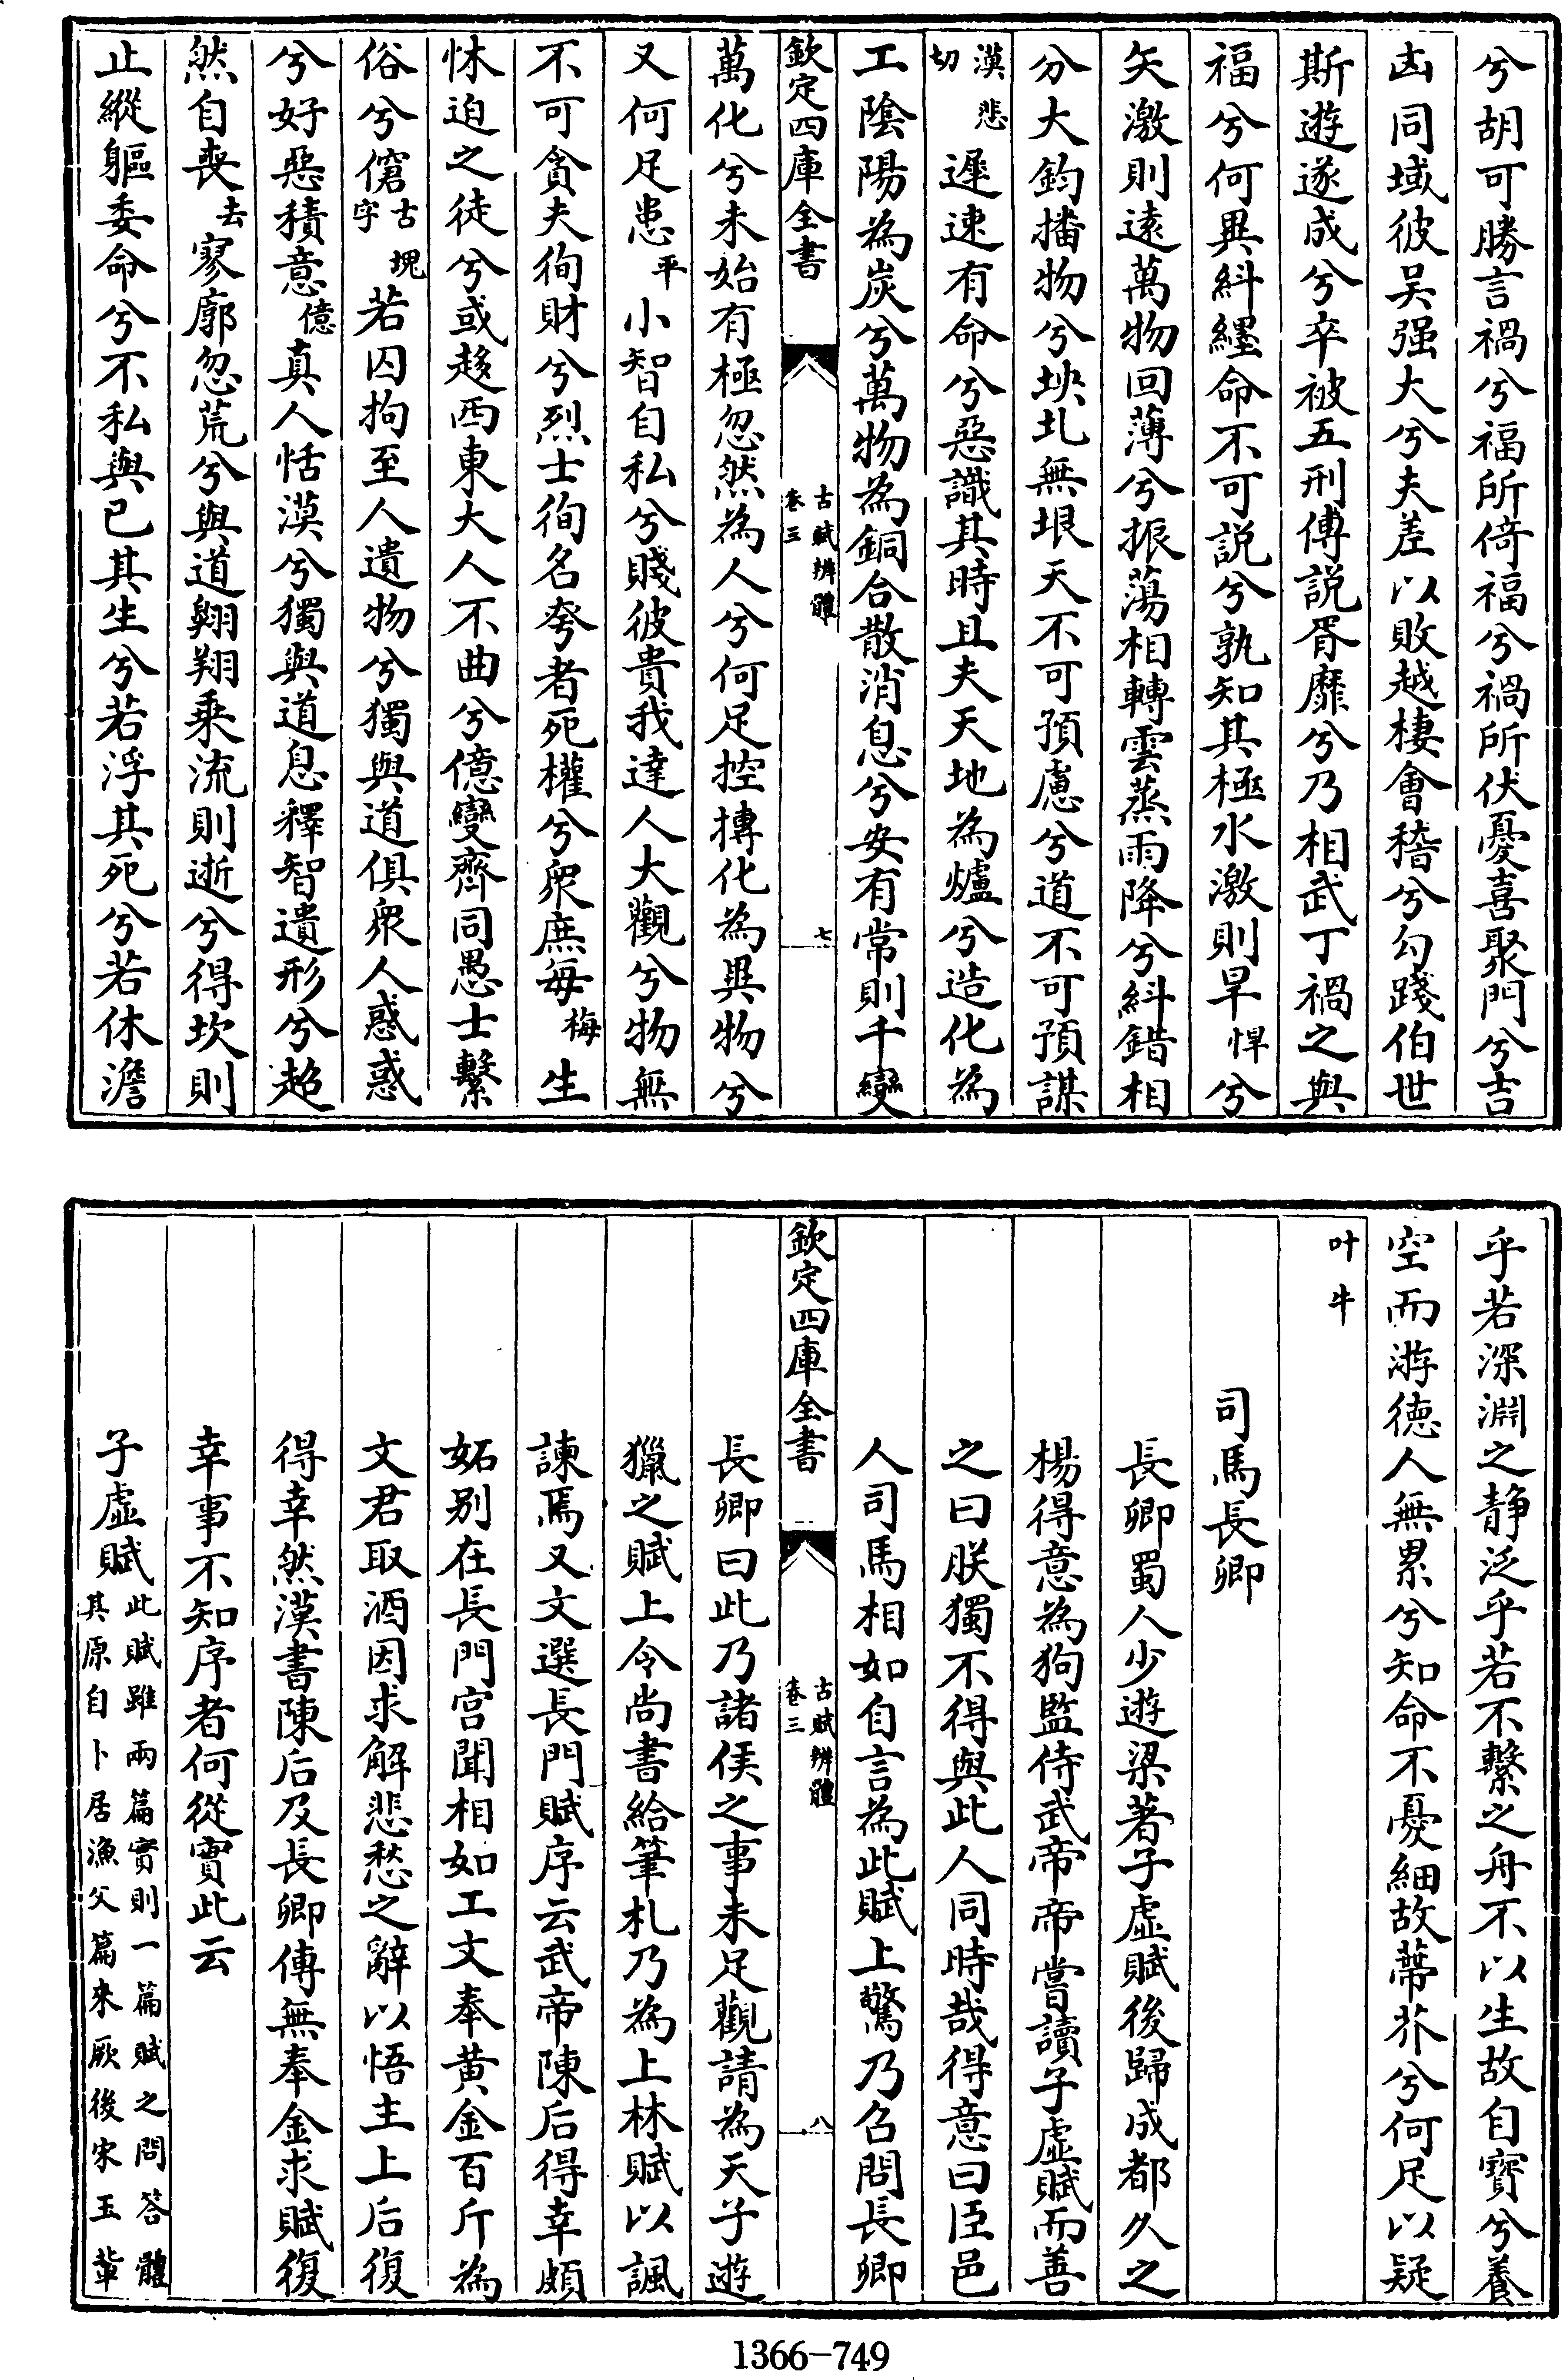 兮胡可勝言禍兮福所倚福兮禍所伏憂喜聚門兮吉
凶同域彼吴强大兮夫差以敗越棲會稽兮勾踐伯世
斯遊遂成兮卒被五刑傅説胥靡兮乃相武丁禍之與
福兮何異糾纆命不可説兮孰知其極水激則旱悍兮
矢激則逺萬物回薄兮振蕩相轉雲蒸雨降兮糾錯相
分大鈞播物兮坱圠無垠天不可預慮兮道不可預謀
漢悲切遲速有命兮惡識其時且夫天地為爐兮造化為
工陰陽為炭兮萬物為銅合散消息兮安有常則千變
欽定四庫全書
古賦辨體
卷三
七
萬化兮未始有極忽然為人兮何足控摶化為異物兮
又何足患平小智自私兮賤彼貴我達人大觀兮物無
不可貪夫徇財兮烈士徇名夸者死權兮衆庶每梅生
怵迫之徒兮或趍西東大人不曲兮億變齊同愚士繫
俗兮窘古字塊若囚拘至人遺物兮獨與道俱衆人惑惑
兮好惡積意億真人恬漠兮獨與道息釋智遺形兮超
然自喪去寥廓忽荒兮與道翺翔乘流則逝兮得坎則
止縱軀委命兮不私與已其生兮若浮其死兮若休澹
乎若深淵之静泛乎若不繫之舟不以生故自寳兮養
空而游徳人無累兮知命不憂細故蔕芥兮何足以疑
叶牛
司馬長卿
長卿蜀人少遊梁著子虛賦後歸成都久之
楊得意為狗監侍武帝帝嘗讀子虛賦而善
之曰朕獨不得與此人同時哉得意曰臣邑
人司馬相如自言為此賦上驚乃召問長卿
欽定四庫全書
古賦辨體
卷三
八
長卿曰此乃諸侯之事未足觀請為天子遊
獵之賦上令尚書給筆札乃為上林賦以諷
諫焉又文選長門賦序云武帝陳后得幸頗
妬别在長門宫聞相如工文奉黄金百斤為
文君取酒因求解悲愁之辭以悟主上后復
得幸然漢書陳后及長卿傳無奉金求賦復
幸事不知序者何從實此云
子虛賦此賦雖兩篇實則一篇賦之問答體
其原自卜居漁父篇來厥後宋玉軰
1366-749